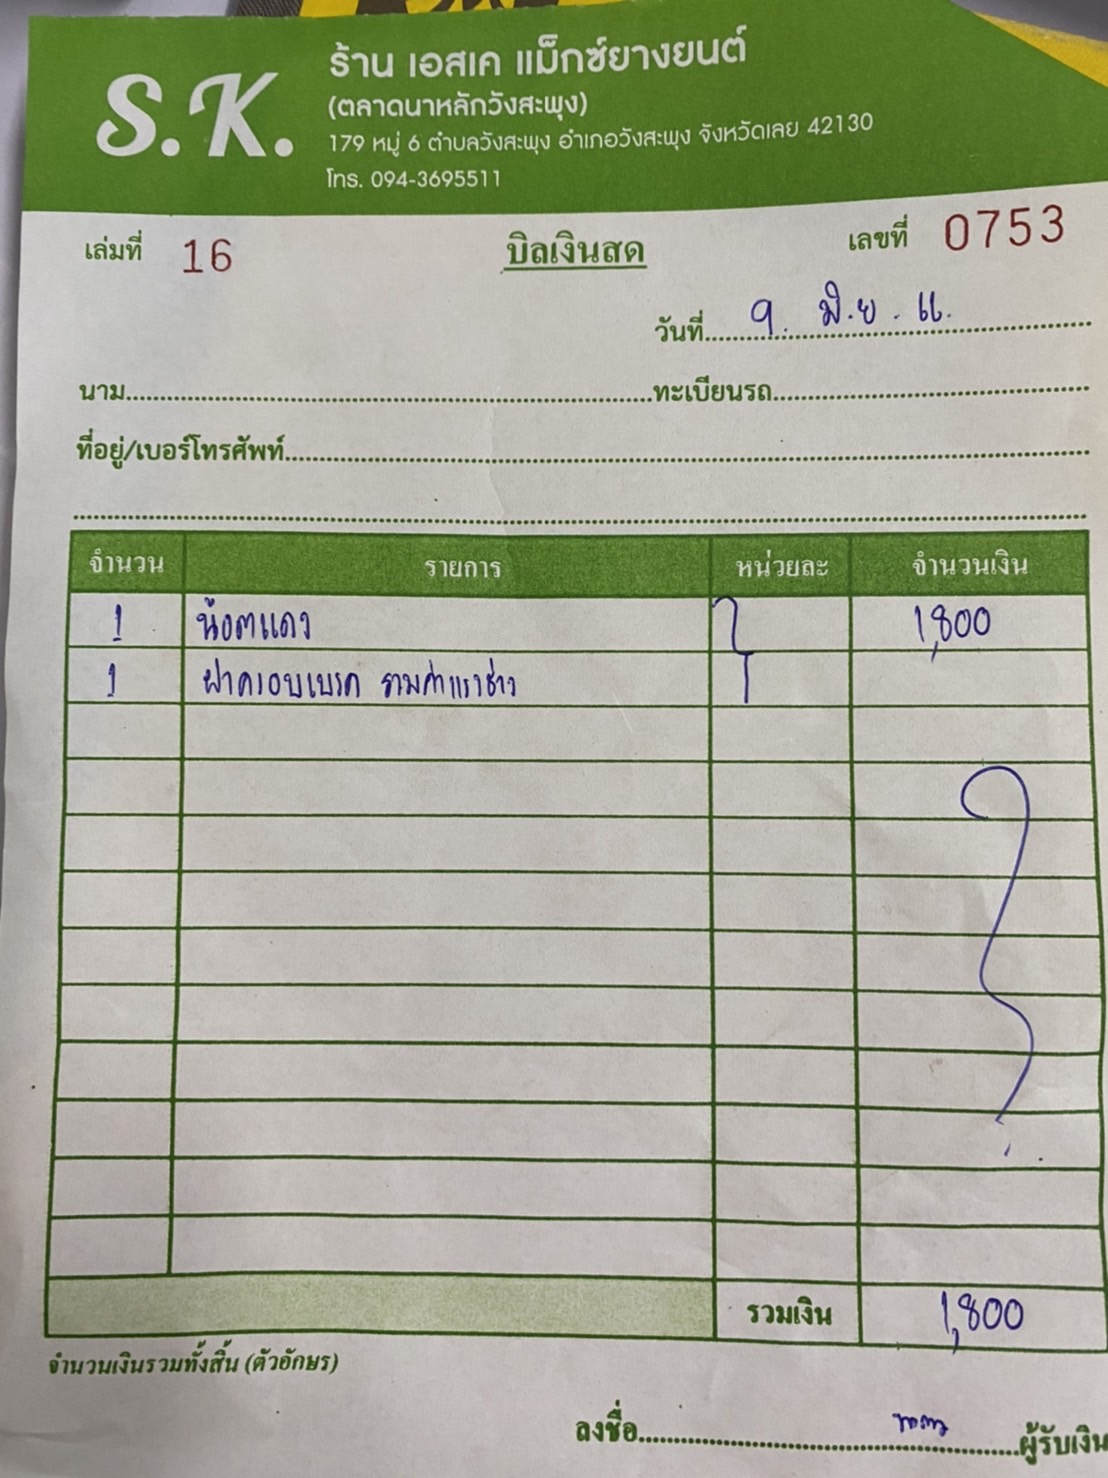 S.K.
ร้าน เอสเค แม็กซ์ยางยนต์
(ตลาดนาหลักวังสะพุง)
179 หมู่ 6 ตำบลวังสะพุง อำเภอวังสะพุง จังหวัดเลย 42130
โทร. 094-3695511
เล่มที่ 16 บิลเงินสด เลขที่ 0753
วันที่ 9. มิ.ย.
นาม ทะเบียนรถ
ที่อยู่/เบอร์โทรศัพท์
จำนวน รายการ หน่วยละ จำนวนเงิน
1 น้อตแดง 1,800
1 ฝาครอบเบรค รวมค่าแรงช่าง
รวมเงิน 1,800
จำนวนเงินรวมทั้งสิ้น (ตัวอักษร)
ลงชื่อ ผู้รับเงิน